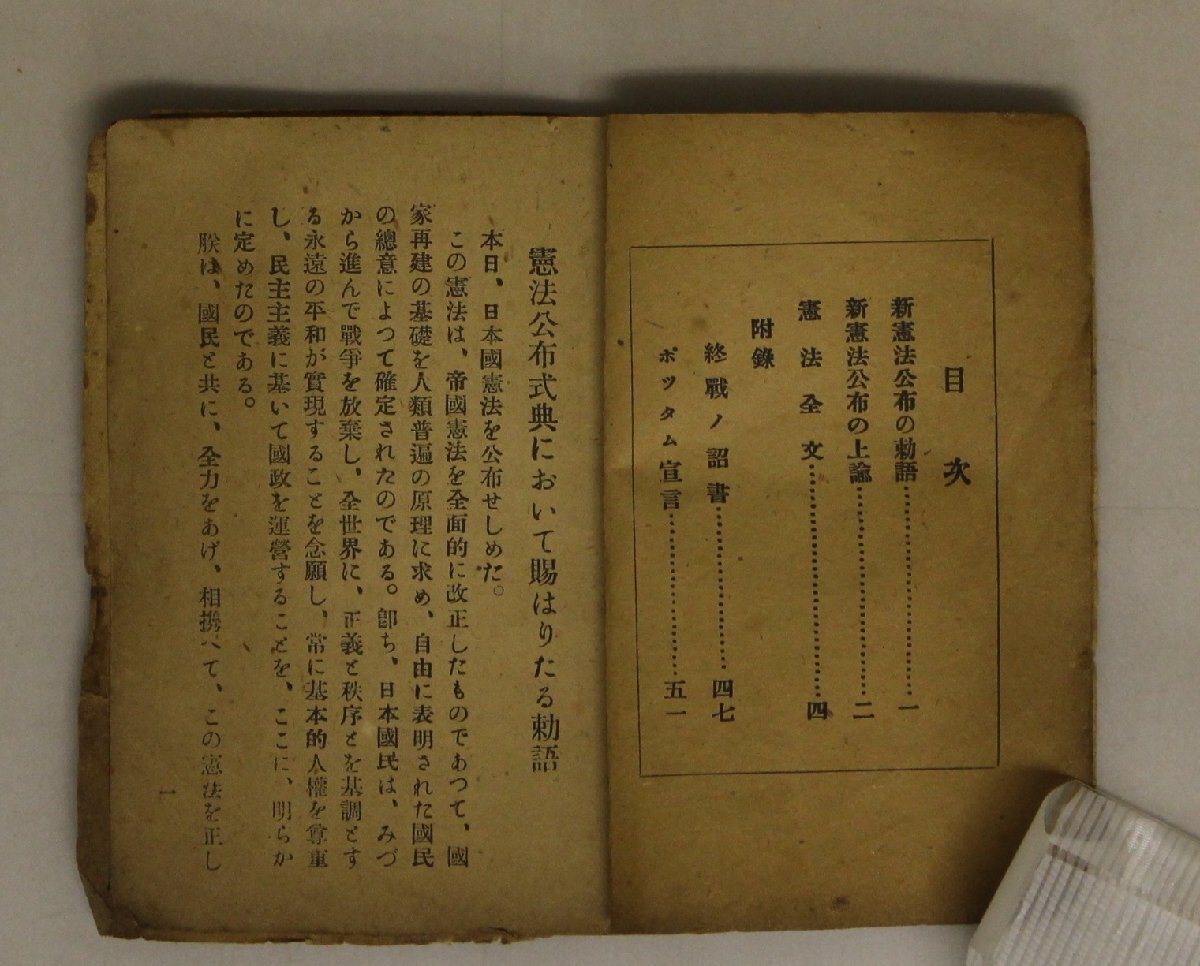 目次
新憲法公布の勅語……………………一
新憲法公布の上諭……………………二
憲法全文……………………四
附錄
終戰ノ詔書……………………四七
ポツタム宣言……………………五一
憲法公布式典において賜はりたる勅語
本日、日本國憲法を公布せしめた。
この憲法は、帝國憲法を全面的に改正したものであつて、國
家再建の基礎を人類普遍の原理に求め、自由に表明された國民
の總意によつて確定されたのである。卽ち、日本國民は、みづ
から進んで戰爭を放棄し、全世界に、正義と秩序とを基調とす
る永遠の平和が實現することを念願し、常に基本的人權を尊重
し、民主主義に基いて國政を運營することを、ここに、明らか
に定めたのである。
朕は、國民と共に、全力をあげ、相携へて、この憲法を正し
一